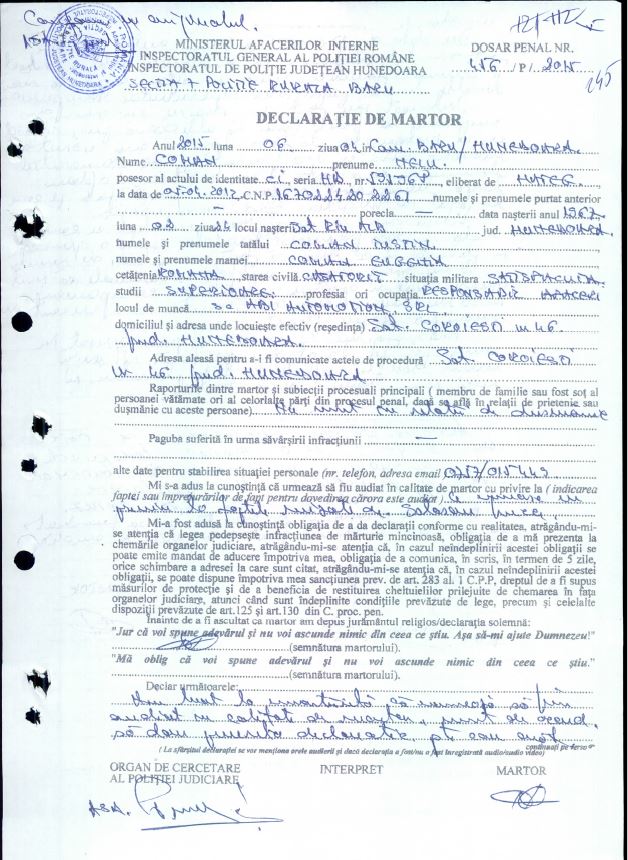 MINISTERUL AFACERILOR INTERNE
INSPECTORATUL GENERAL AL POLIȚIEI ROMÂNE
INSPECTORATUL DE POLIȚIE JUDEȚEAN HUNEDOARA
SECȚIA 7 POLIȚIE RURALĂ BARU
DOSAR PENAL NR.
/P/ 2015
245
DECLARAȚIE DE MARTOR
Anul 2015 luna 06 ziua Com. BARU/HUNEDOARA
Nume COMAN prenume NELU
posesor al actului de identitate CI, seria HD, nr. eliberat de HAȚEG
la data de C.N.P. numele și prenumele purtat anterior
— porecla — data nașterii anul 1967
luna 02 ziua 24 locul nașterii Sat Rîu Alb jud. HUNEDOARA
numele și prenumele tatălui COMAN IUSTIN
numele și prenumele mamei COMAN EUGENIA
cetățenia ROMANA starea civilă CASATORIT situația militara SATISFACUTA
studii SUPERIOARE profesia ori ocupația RESPONSABIL AFACERI
locul de muncă SC AUTOMOTION SRL
domiciliul și adresa unde locuiește efectiv (reședința) Sat. COROIESTI nr 46
jud. HUNEDOARA
Adresa aleasă pentru a-i fi comunicate actele de procedură Sat COROIESTI
nr 46 jud. HUNEDOARA
Raporturile dintre martor și subiecții procesuali principali ( membru de familie sau fost soț al
persoanei vătămate ori al celorlalte părți din procesul penal, dacă se află în relații de prietenie sau
dușmănie cu aceste persoane) Nu sunt in relatii de dusmanie
Paguba suferită în urma săvârșirii infracțiunii —
alte date pentru stabilirea situației personale (nr. telefon, adresa email
Mi s-a adus la cunoștință că urmează să fiu audiat în calitate de martor cu privire la ( indicarea
faptei sau împrejurărilor de fapt pentru dovedirea cărora este audiat )
Mi-a fost adusă la cunoștință obligația de a da declarații conforme cu realitatea, atrăgându-mi-
se atenția că legea pedepsește infracțiunea de mărturie mincinoasă, obligația de a mă prezenta la
chemările organelor judiciare, atrăgându-mi-se atenția că, în cazul neîndeplinirii acestei obligații se
poate emite mandat de aducere împotriva mea, obligația de a comunica, în scris, în termen de 5 zile,
orice schimbare a adresei la care sunt citat, atrăgându-mi-se atenția că, în cazul neîndeplinirii acestei
obligații, se poate dispune împotriva mea sancțiunea prev. de art. 283 al. 1 C.P.P, dreptul de a fi supus
măsurilor de protecție și de a beneficia de restituirea cheltuielilor prilejuite de chemarea în fața
organelor judiciare, atunci când sunt îndeplinite condițiile prevăzute de lege, precum și celelalte
dispoziții prevăzute de art.125 și art.130 din C. proc. pen.
Înainte de a fi ascultat ca martor am depus jurământul religios/declarația solemnă:
"Jur că voi spune adevărul și nu voi ascunde nimic din ceea ce știu. Așa să-mi ajute Dumnezeu!"
(semnătura martorului).
"Mă oblig că voi spune adevărul și nu voi ascunde nimic din ceea ce știu."
(semnătura martorului).
Declar următoarele:
Am luat la cunostinta că urmează să fiu
audiat in calitate de martor, sunt de acord
să dau declaratie
continuați pe verso
( La sfârșitul declarației se vor menționa orele audierii și dacă declarația a fost/nu a fost înregistrată audio/audio video)
ORGAN DE CERCETARE INTERPRET MARTOR
AL POLIȚIEI JUDICIARE
ASA.